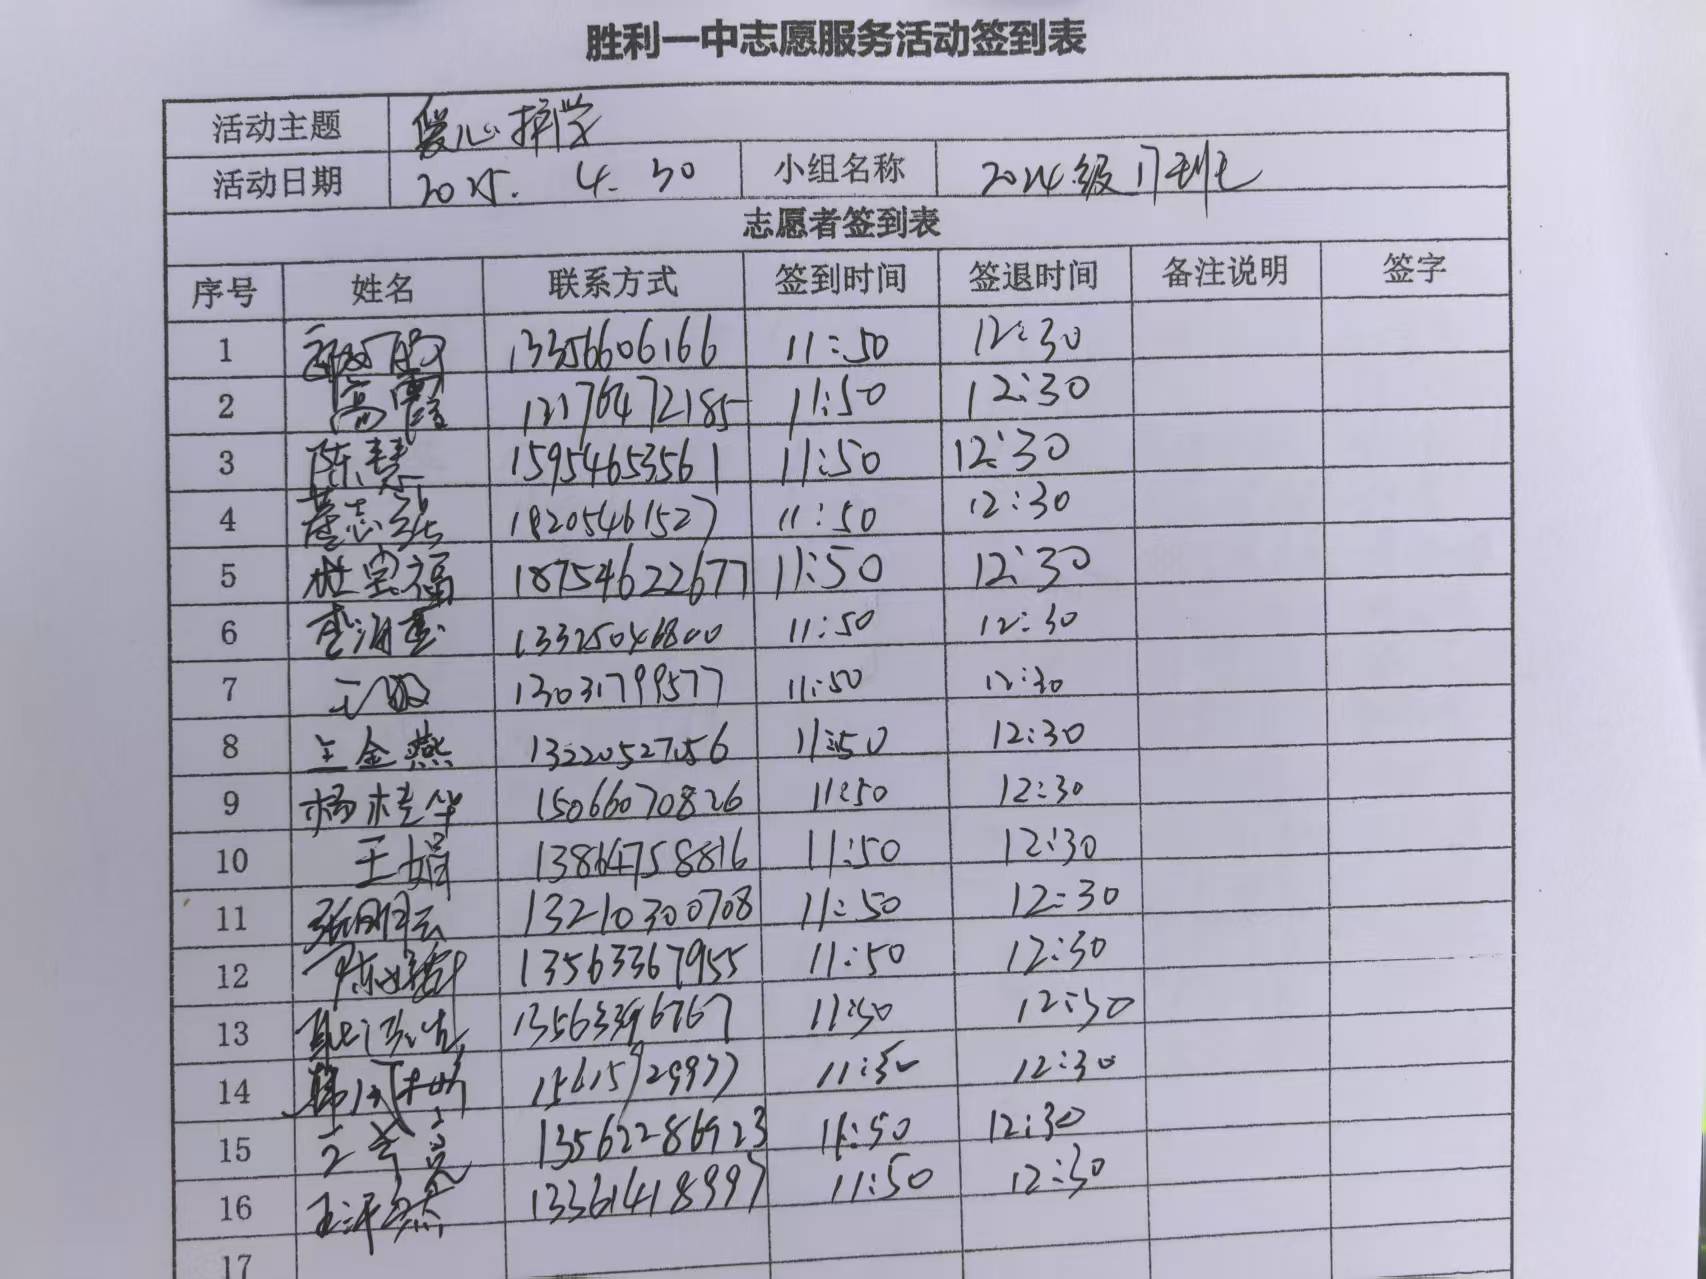 胜利一中志愿服务活动签到表
活动主题 爱心护学
活动日期 2025. 4. 30 小组名称 2024级17班
志愿者签到表
序号 姓名 联系方式 签到时间 签退时间 备注说明 签字
1 13356606166 11:50 12:30
2 高霞 12176472185 11:50 12:30
3 陈慧 15954653561 11:50 12:30
4 18205461527 11:50 12:30
5 宝福 18754622677 11:50 12:30
6 13325046800 11:50 12:30
7 13031799577 11:50 12:30
8 王金燕 13220527056 11:50 12:30
9 杨桂华 15066070826 11:50 12:30
10 王娟 13864758816 11:50 12:30
11 13210300708 11:50 12:30
12 陈 13563367955 11:50 12:30
13 13563396767 11:50 12:30
14 韩 11:50 12:30
15 13562286923 11:50 12:30
16 13361418997 11:50 12:30
17